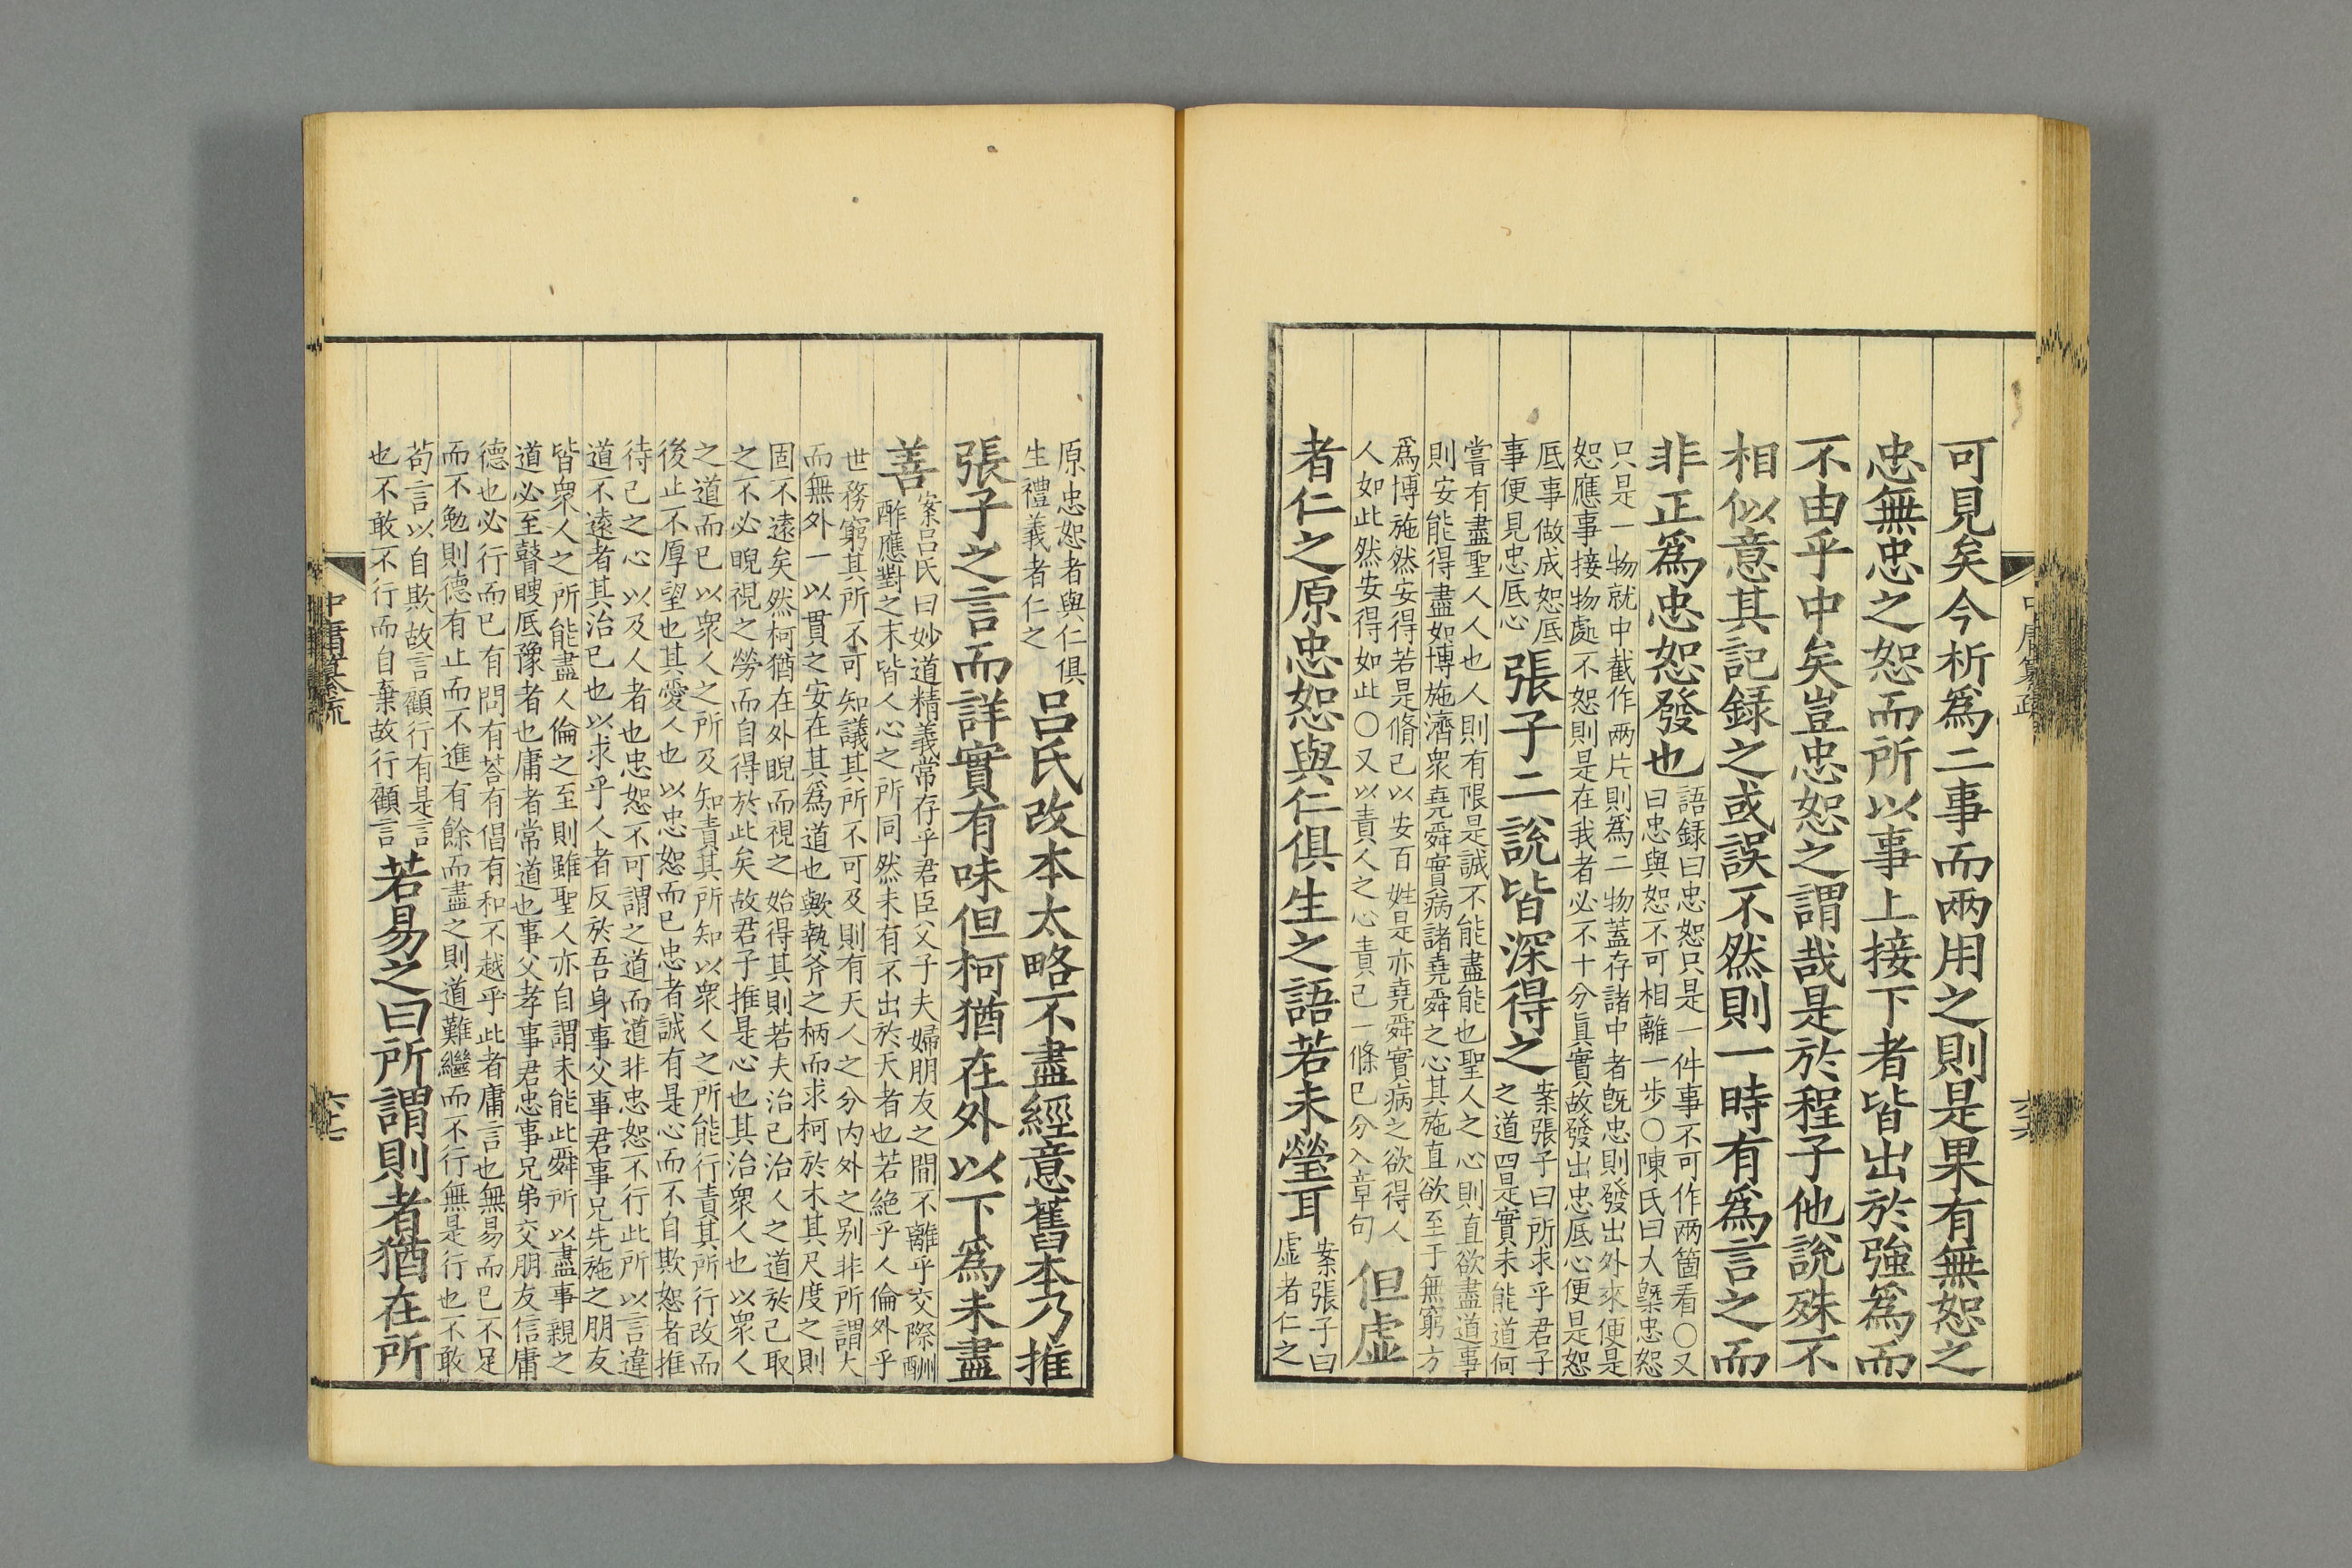 可見矣今析爲二事而兩用之則是果有無恕之
忠無忠之恕而所以事上接下者皆出於強爲而
不由乎中矣豈忠恕之謂哉是於程子他說殊不
相似意其記録之或誤不然則一時有爲言之而
非正爲忠恕發也
語録曰忠恕只是一件事不可作兩箇看〇又
曰忠與恕不可相離一步〇陳氏曰大槩忠恕
只是一物就中截作兩片則爲二物蓋存諸中者旣忠則發出外來便是
恕應事接物處不恕則是在我者必不十分眞實故發出忠底心便是恕
底事做成恕底
事便見忠底心
張子二說皆深得之
案張子曰所求乎君子
之道四是實未能道何
嘗有盡聖人人也人則有限是誠不能盡能也聖人之心則直欲盡道事
則安能得盡如博施濟衆堯舜實病諸堯舜之心其施直欲至于無窮方
爲博施然安得若是脩己以安百姓是亦堯舜實病之欲得人
人如此然安得如此〇又以責人之心責己一條已分入章句
但虚
者仁之原忠恕與仁俱生之語若未瑩耳
案張子曰
虚者仁之
中庸纂疏
六十六
原忠恕者與仁俱
生禮義者仁之
呂氏改本太略不盡經意舊本乃推
張子之言而詳實有味但柯猶在外以下爲未盡
善
案呂氏曰妙道精義常存乎君臣父子夫婦朋友之間不離乎交際酬
酢應對之末皆人心之所同然未有不出於天者也若絶乎人倫外乎
世務窮其所不可知議其所不可及則有天人之分内外之别非所謂大
而無外一以貫之安在其爲道也歟執斧之柄而求柯於木其尺度之則
固不遠矣然柯猶在外睨而視之始得其則若夫治己治人之道於己取
之不必睨視之勞而自得於此矣故君子推是心也其治衆人也以衆人
之道而已以衆人之所及知責其所知以衆人之所能行責其所行改而
後止不厚望也其愛人也以忠恕而已忠者誠有是心而不自欺恕者推
待己之心以及人者也忠恕不可謂之道而道非忠恕不行此所以言違
道不遠者其治己也以求乎人者反於吾身事父事君事兄先施之朋友
皆衆人之所能盡人倫之至則雖聖人亦自謂未能此舜所以盡事親之
道必至瞽瞍底豫者也庸者常道也事父孝事君忠事兄弟交朋友信庸
德也必行而已有問有荅有倡有和不越乎此者庸言也無易而已不足
而不勉則德有止而不進有餘而盡之則道難繼而不行無是行也不敢
苟言以自欺故言顧行有是言
也不敢不行而自棄故行顧言
若易之曰所謂則者猶在所
中庸纂疏
六十七